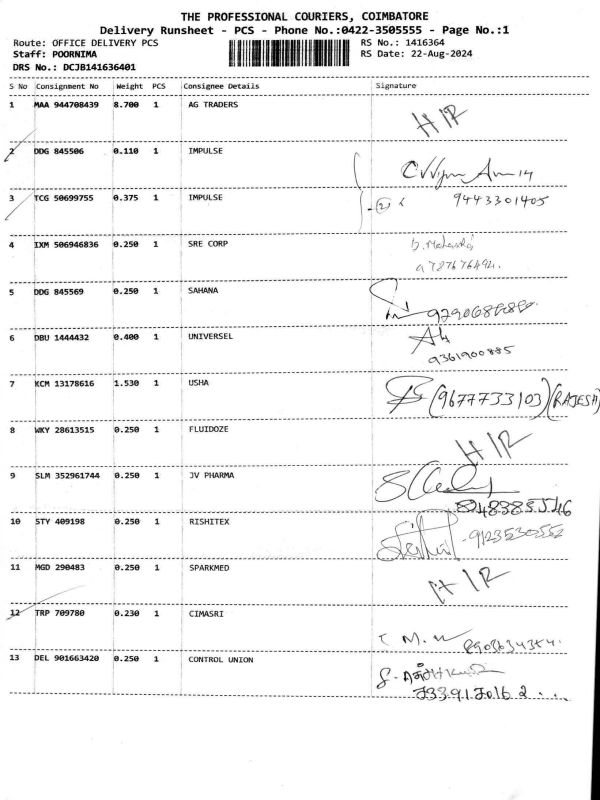 THE PROFESSIONAL COURIERS, COIMBATORE
Delivery Runsheet - PCS - Phone No.:0422-3505555 - Page No.:1
Route: OFFICE DELIVERY PCS RS No.: 1416364
Staff: POORNIMA RS Date: 22-Aug-2024
DRS No.: DCJB141636401
S No Consignment No Weight PCS Consignee Details Signature
1 MAA 944708439 8.700 1 AG TRADERS
H/R
2 DDG 845506 0.110 1 IMPULSE
3 TCG 50699755 0.375 1 IMPULSE 9443301405
4 IXM 506946836 0.250 1 SRE CORP
5 DDG 845569 0.250 1 SAHANA
6 DBU 1444432 0.400 1 UNIVERSEL
9361900885
7 KCM 13178616 1.530 1 USHA
(9677733103) (RAJESH)
8 WKY 28613515 0.250 1 FLUIDOZE
H/R
9 SLM 352961744 0.250 1 JV PHARMA
10 STY 409198 0.250 1 RISHITEX
9123530552
11 MGD 290483 0.250 1 SPARKMED
H/R
12 TRP 709780 0.230 1 CIMASRI
13 DEL 901663420 0.250 1 CONTROL UNION